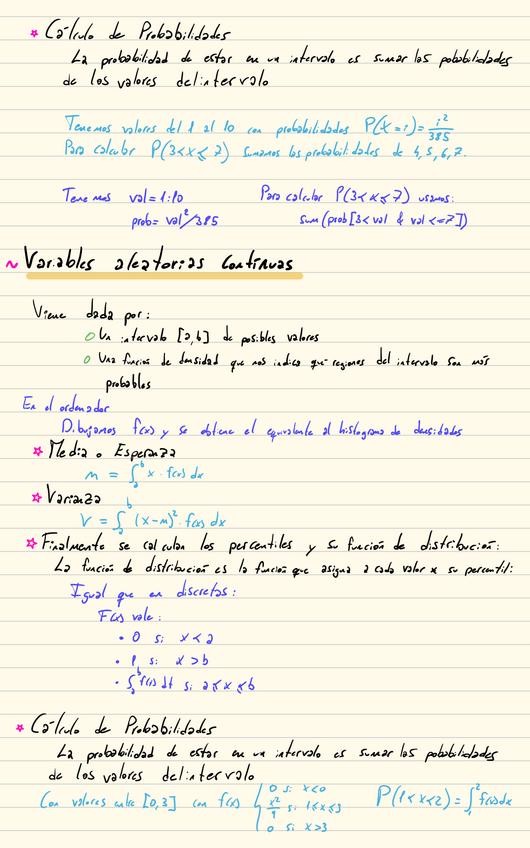 ☆ Cálculo de Probabilidades
La probabilidad de estar en un intervalo es sumar las pobabilidades
de los valores del intervalo
Tenemos valores del 1 al 10 con probabilidades P(X=i)=i²/385
Para calcular P(3<x⩽7) sumamos las probabilidades de 4,5,6,7.
Tenemos val=1:10 Para calcular P(3<x⩽7) usamos:
prob=val²/385 sum(prob[3<val & val<=7])
~ Variables aleatorias continuas
Viene dada por:
o Un intervalo [a,b] de posibles valores
o Una función de densidad que nos indica que regiones del intervalo son más
probables
En el ordenador
Dibujamos f(x) y se obtiene el equivalente al histograma de densidades
☆ Media o Esperanza
m = ∫ₐᵇ x·f(x)dx
☆ Varianza
V = ∫ₐᵇ (x-m)²·f(x)dx
☆ Finalmente se calculan los percentiles y su función de distribución:
La función de distribución es la función que asigna a cada valor x su percentil:
Igual que en discretas:
F(x) vale:
• 0 si x<a
• 1 si x>b
• ∫ₐᵇ f(t)dt si a⩽x⩽b
☆ Cálculo de Probabilidades
La probabilidad de estar en un intervalo es sumar las pobabilidades
de los valores del intervalo
Con valores entre [0,3] con f(x) { 0 si x<0 P(1<x<2)=∫₁² f(x)dx
x²/9 si 1⩽x⩽3
0 si x>3